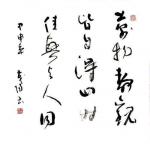 萬物靜觀
皆自得四時
佳興與人同
甲申年 書